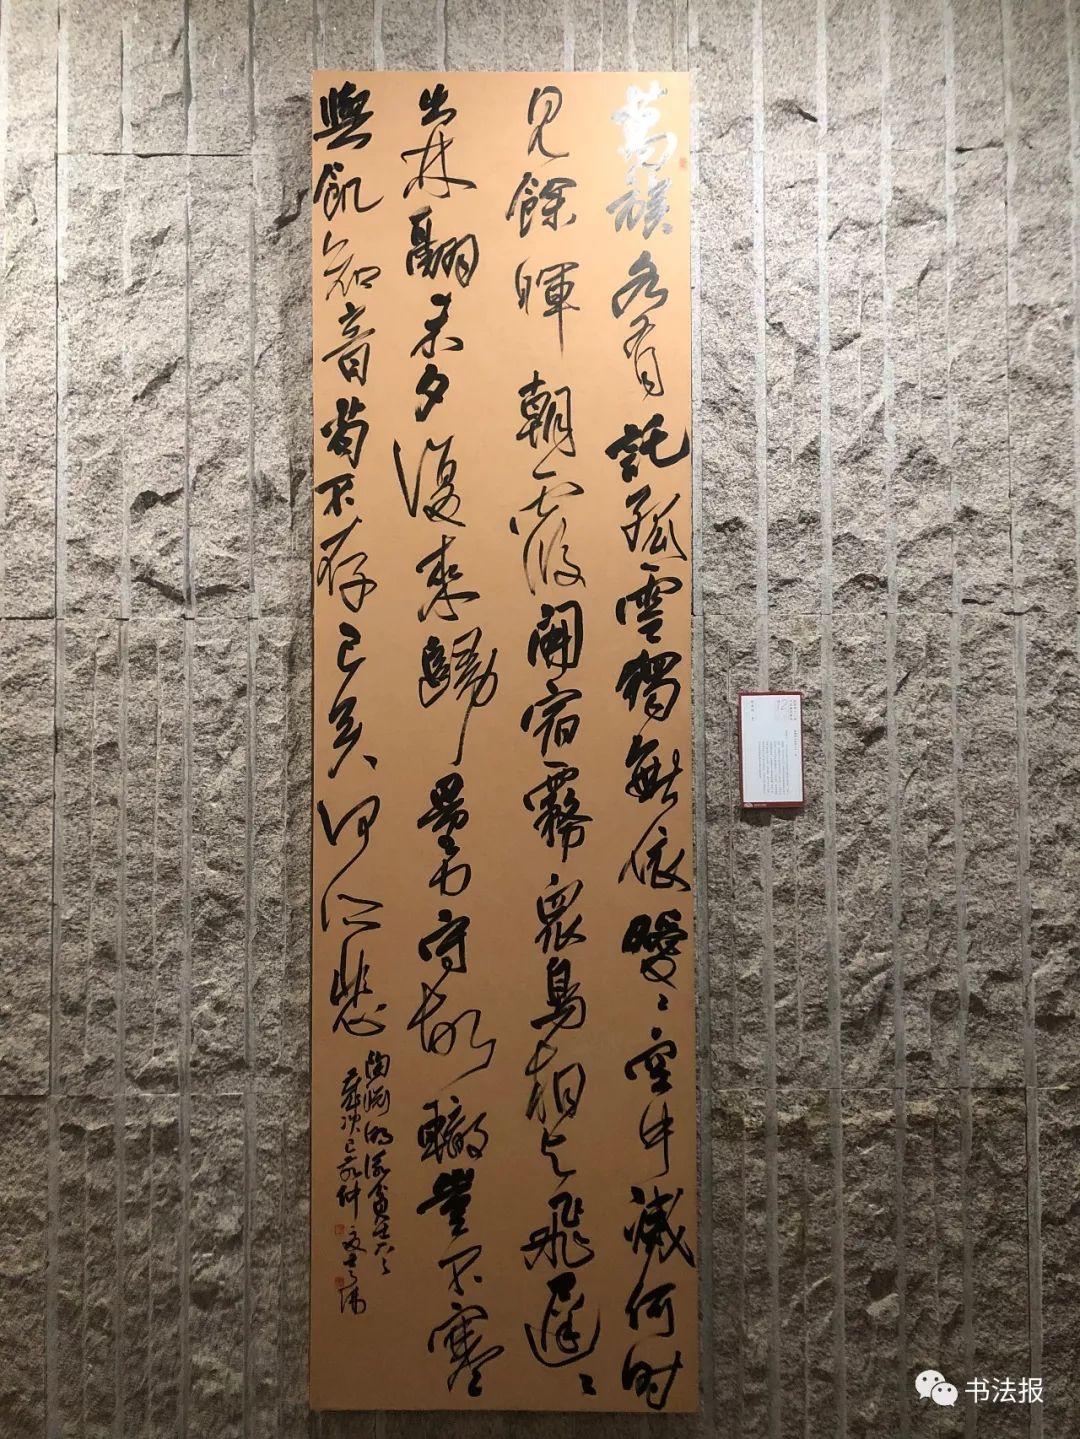 萬族各有託孤雲獨無依曖〻空中滅何时
見餘暉朝霞開宿霧衆鳥相与飛遲〻
出林翮未夕復來歸量力守故轍豈不寒
與飢知音苟不存已矣何所悲
陶淵明詠貧士
歲次己亥仲夏
书法报